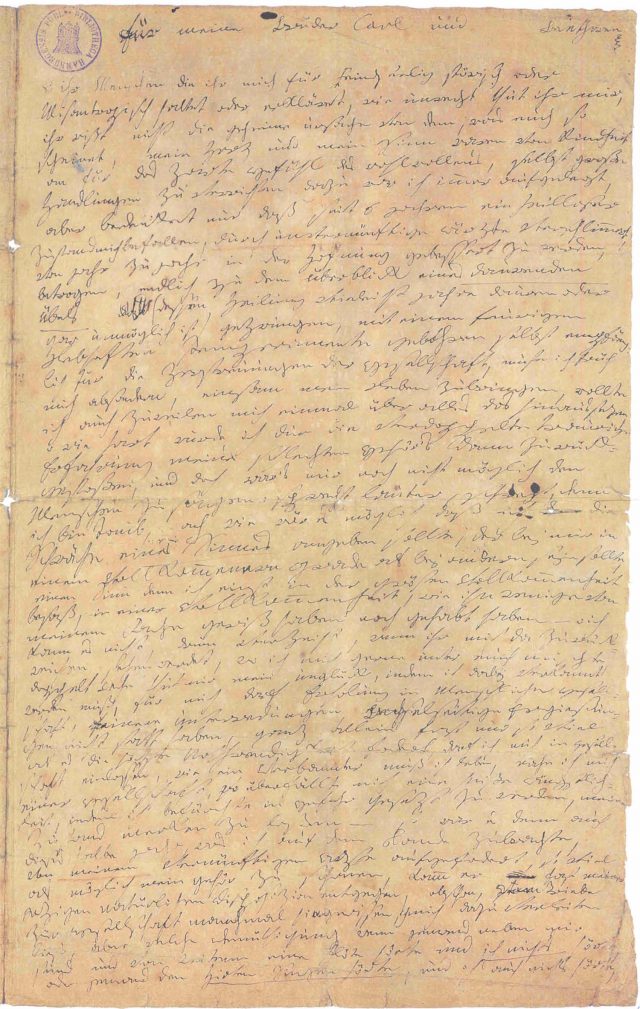 HAMBURGENSIS PUBL. BIBLIOTHECA
für meine Brüder Carl und Beethowen
o ihr Menschen die ihr mich für Feindseelig störisch oder
Misantropisch haltet oder erkläret, wie unrecht thut ihr mir,
ihr wißt nicht die geheime urßache von dem, was euch so
scheinet, mein Herz und mein Sinn waren von Kindheit
an für das Zarte Gefühl des wohlwollens, selbst große
Handlungen zu verrichten dazu war ich immer aufgelegt,
aber bedenket nur daß seit 6 Jahren ein heilloser
Zustand mich befallen, durch unvernünftige ärzte verschlimmert,
von jahr zu jahr in der Hofnung gebessert zu werden,
betrogen, endlich zu dem überblick eines daurenden
Übels (dessen Heilung vieleicht jahre dauren oder
gar unmöglich ist) gezwungen, mit einem feurigen
Lebhaften Temperamente gebohren selbst empfäng-
lich für die Zerstreuungen der Gesellschaft, muste ich früh
mich absondern, einsam mein Leben zubringen, wollte
ich auch zuweilen mich einmal über alles das hinaussezen,
o wie hart wurde ich dur die verdoppelte traurige
Erfahrung meines schlechten Gehör's dann zurück-
gestoßen, und doch war's mir noch nicht möglich den
Menschen zu sagen: sprecht lauter, schreyt, denn
ich bin taub, ach wie wär es möglich daß ich dann die
Schwäche eines Sinnes angeben sollte, der bey mir in
einem Vollkommenern Grade als bey andern seyn sollte,
einen Sinn den ich einst in der grösten Vollkommenheit
besaß, in einer Vollkommenheit, wie ihn wenige von
meinem Fache gewiß haben noch gehabt haben – o ich
kann es nicht, drum verzeiht, wenn ihr mich da zurück-
weichen sehen werdet, wo ich mich gerne unter euch mischte,
doppelt wehe thut mir mein unglück, indem ich dabey verkannt
werden muß, für mich darf Erholung in Menschlicher Gesell-
schaft, feinere unterredungen, Wechselseitige Ergießun-
gen nicht statt haben, ganz allein fast nur so viel
als es die höchste Nothwendigkeit fodert, darf ich mich in gesell-
schaft einlassen, wie ein Verbannter muß ich leben, nahe ich mich
einer Gesellschaft, so überfällt mich eine heiße Ängstlich-
keit, indem ich befürchte in Gefahr gesezt zu werden, meinen
Zustand merken zu laßen – so war es denn auch
dieses halbe jahr, was ich auf dem Lande zubrachte,
von meinem vernünftigen Arzte aufgefodert, so viel
als möglich mein Gehör zu schonen, kamm er fast meiner
jezigen natürlichen Disposizion entgegen, obschon, vom Triebe
zur Gesellschaft manchmal hingerissen, ich mich dazu verleiten
ließ, aber welche Demüthigung wenn jemand neben mir
stund und von weitem eine flöte hörte und ich nichts hörte,
oder jemand den Hirten Singen hörte, und ich auch nichts hörte,